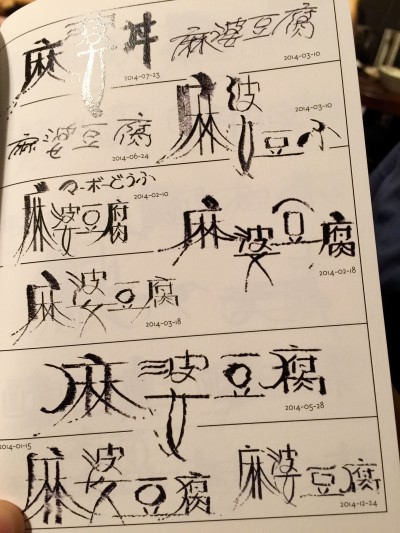 麻婆丼
2014-07-23
麻婆豆腐
2014-03-10
麻婆豆腐
2014-06-24
麻婆豆ふ
2014-03-10
麻婆豆腐
マーボーどうふ
2014-02-10
麻婆豆腐
2014-02-18
麻婆豆腐
2014-03-18
麻婆豆腐
2014-05-28
2014-01-15
麻婆豆腐
麻婆豆腐
2014-12-24